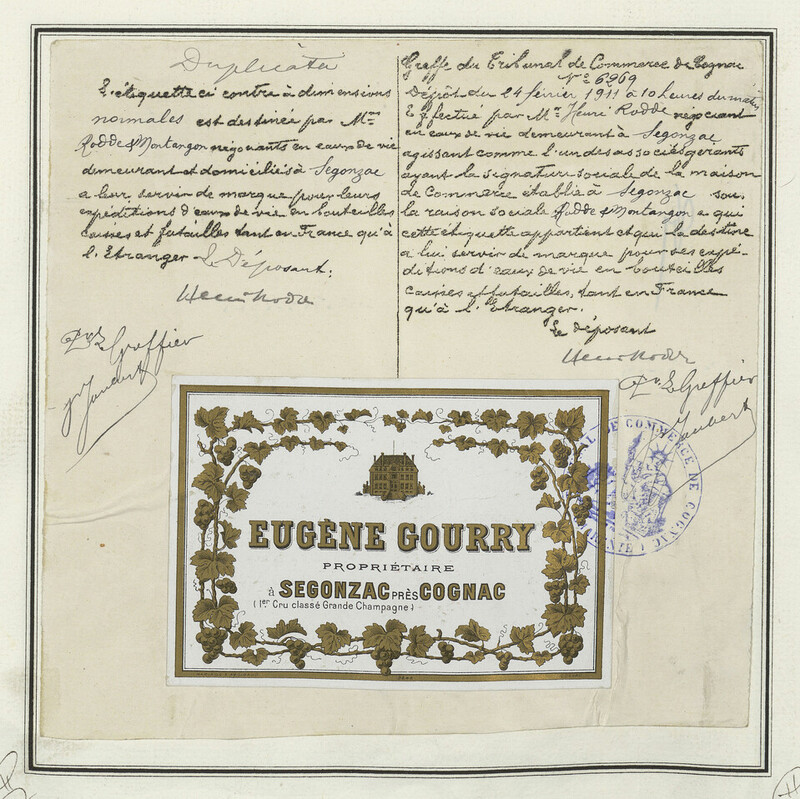 Duplicata
L'étiquette ci contre à dimensions
normales est destinée par Mrs
Rodde & Montangon négociants en eaux de vie
demeurant et domiciliés à Segonzac
a leur servir de marque pour leurs
expéditions d'eaux de vie en bouteilles
caisses et futailles tant en France qu'à
l'Etranger. Le Déposant.
Henri Rodde
Pr Le Greffier
Joubert
Greffe du Tribunal de Commerce de Cognac
No 6969
Dépôt du 24 février 1911 à 10 heures du matin
Effectué par Mr Henri Rodde négociant
en eaux de vie demeurant à Segonzac
agissant comme l'un des associés gérants
ayant la signature sociale de la maison
de Commerce établie à Segonzac sous
la raison sociale Rodde & Montangon a qui
cette étiquette appartient et qui la destine
a lui servir de marque pour ses expé-
ditions d'eaux de vie en bouteilles
caisses et futailles, tant en France
qu'à l'Etranger.
Le déposant
Henri Rodde
Pr Le Greffier
Joubert
EUGÈNE GOURRY
PROPRIÉTAIRE
à SEGONZAC PRÈS COGNAC
(1er Cru classé Grande Champagne)
AL DE COMMERCE DE COGNAC